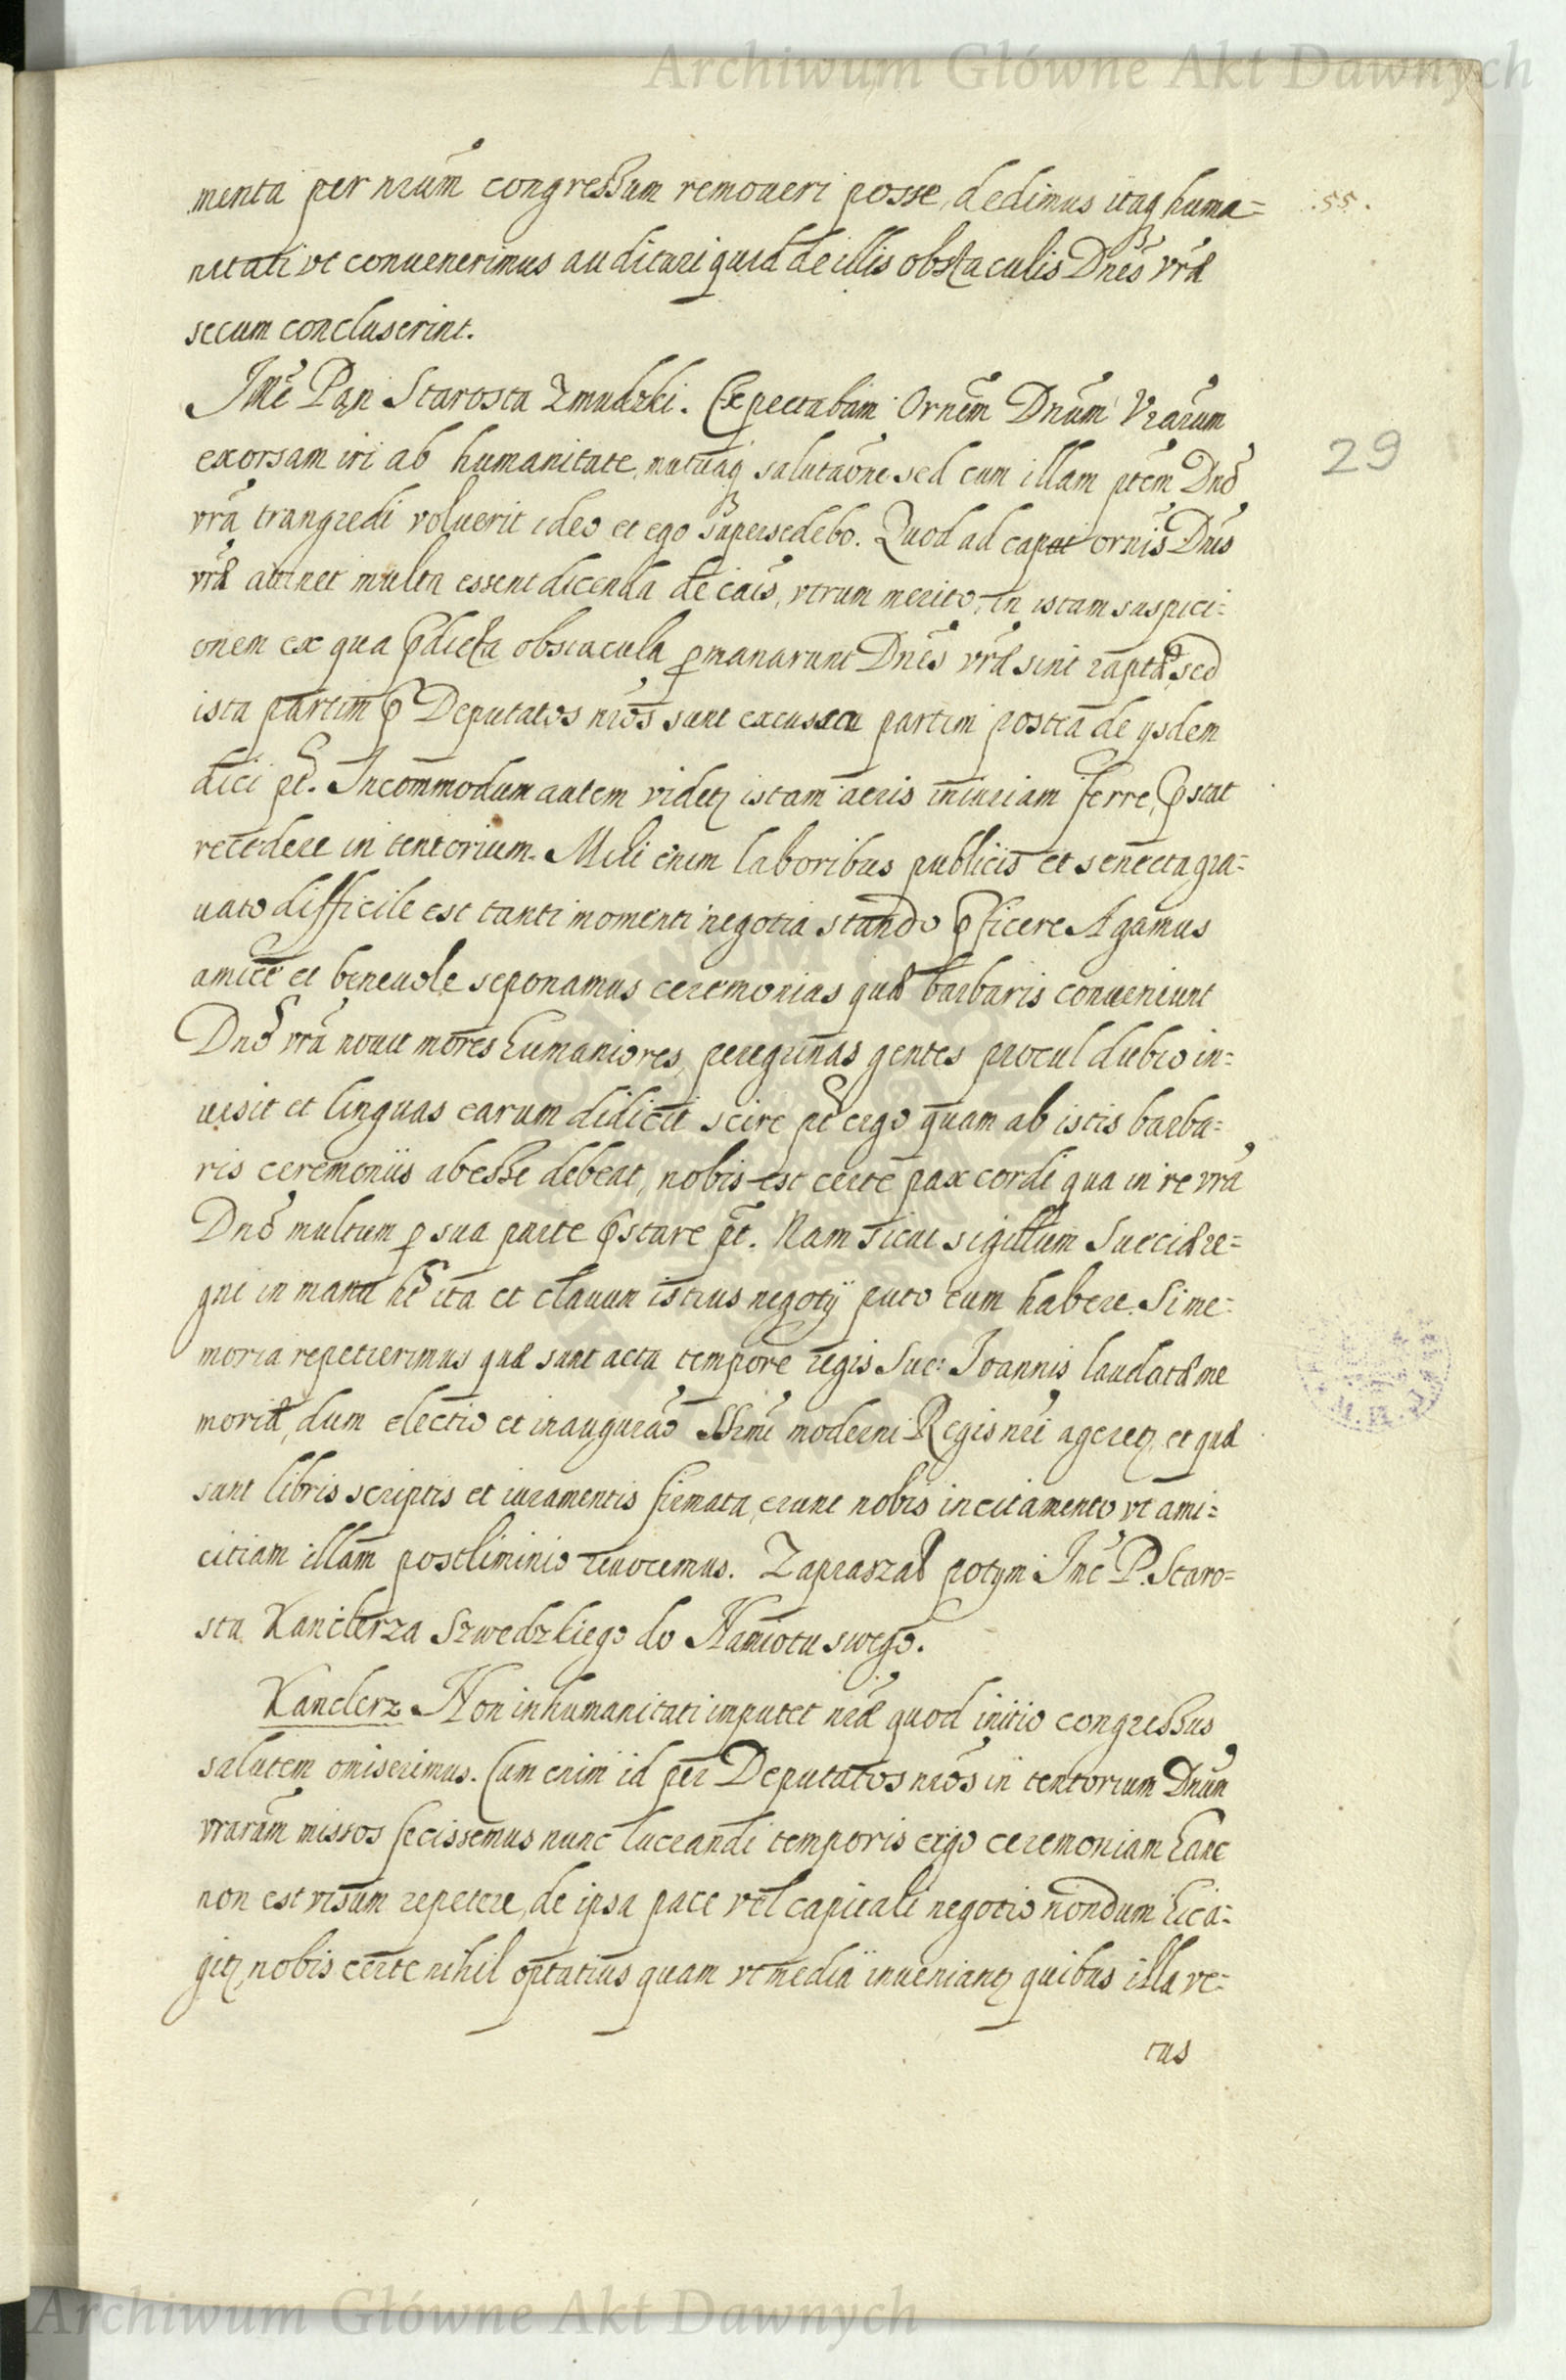 Archiwum Główne Akt Dawnych
menta per nrũm congressum remoueri posse, dedimus itaq huma= .55.
nitati vt conuenerimus audituri quid de illis obstaculis Dnẽs vrã
secum concluserint.
JMc̃ Pan Starosta Zmudzki. Expectabam Ornẽm Dnũm Vrãrum
exorsam iri ab humanitate, mutuaq salutaõne sed cum illam ptẽm Dnõ 29
vrã trangredi voluerit ideo et ego supersedebo. Quod ad caput ornĩs Dnĩs
vræ attinet multa essent dicenda de cãis, vtrum merito, in istam suspici=
onem ex qua p̃dicta obstacula p̱manarunt Dnẽs vræ sint raptæ, sed
ista partim p̃ Deputatos nrõs sunt excussa partim postea de ysdem
dici pt̃. Incommodum autem videtꝫ istam aeris iniuriam ferre, p̃stat
recedere in tentorium. Mihi enim laboribus publicis et senecta gra=
uato difficile est tanti momenti negotia stando p̃ficere Agamus
amice et beneuole seponamus ceremonias quæ barbaris conueniunt
Dnõ vrã nouit mores humaniores, peregrinas gentes procul dubio in=
uisit et linguas earum didicit scire pt̃ ergo quam ab istis barba=
ris ceremoniis abesse debeat, nobis est certe pax cordi qua in re vrã
Dnõ multum p̱ sua parte p̃stare pt̃. Nam sicut sigillum Sueciæ re=
gni in manu ht̃ ita et clauum istius negotÿ puto eum habere. Si me=
moria repetierimus quæ sunt acta tempore regis Sue: Joannis laudatæ me
moriæ, dum electio et inauguraõ Ssrmi moderni Regis nrĩ ageretꝫ, et quæ
sunt libris scriptis et iuramentis firmata, erunt nobis incitamento vt ami=
citiam illam postliminio reuocemus. Zapraszał potym Jmc̃ P. Staro=
sta Kanclerza Szwedzkiego do Namiotu swego.
Kanclerz. Non inhumanitati imputet nræ quod initio congressus
salutem omiserimus. Cum enim id per Deputatos nrõs in tentorium Dnũm
vrarũm missos fecissemus nunc lucrandi temporis ergo ceremoniam hanc
non est visum repetere, de ipsa pace vel capitali negotio nondum hic a=
gitꝫ nobis certe nihil optatius quam vt media inueniantꝫ quibus illa ve=
tus
Archiwum Główne Akt Dawnych